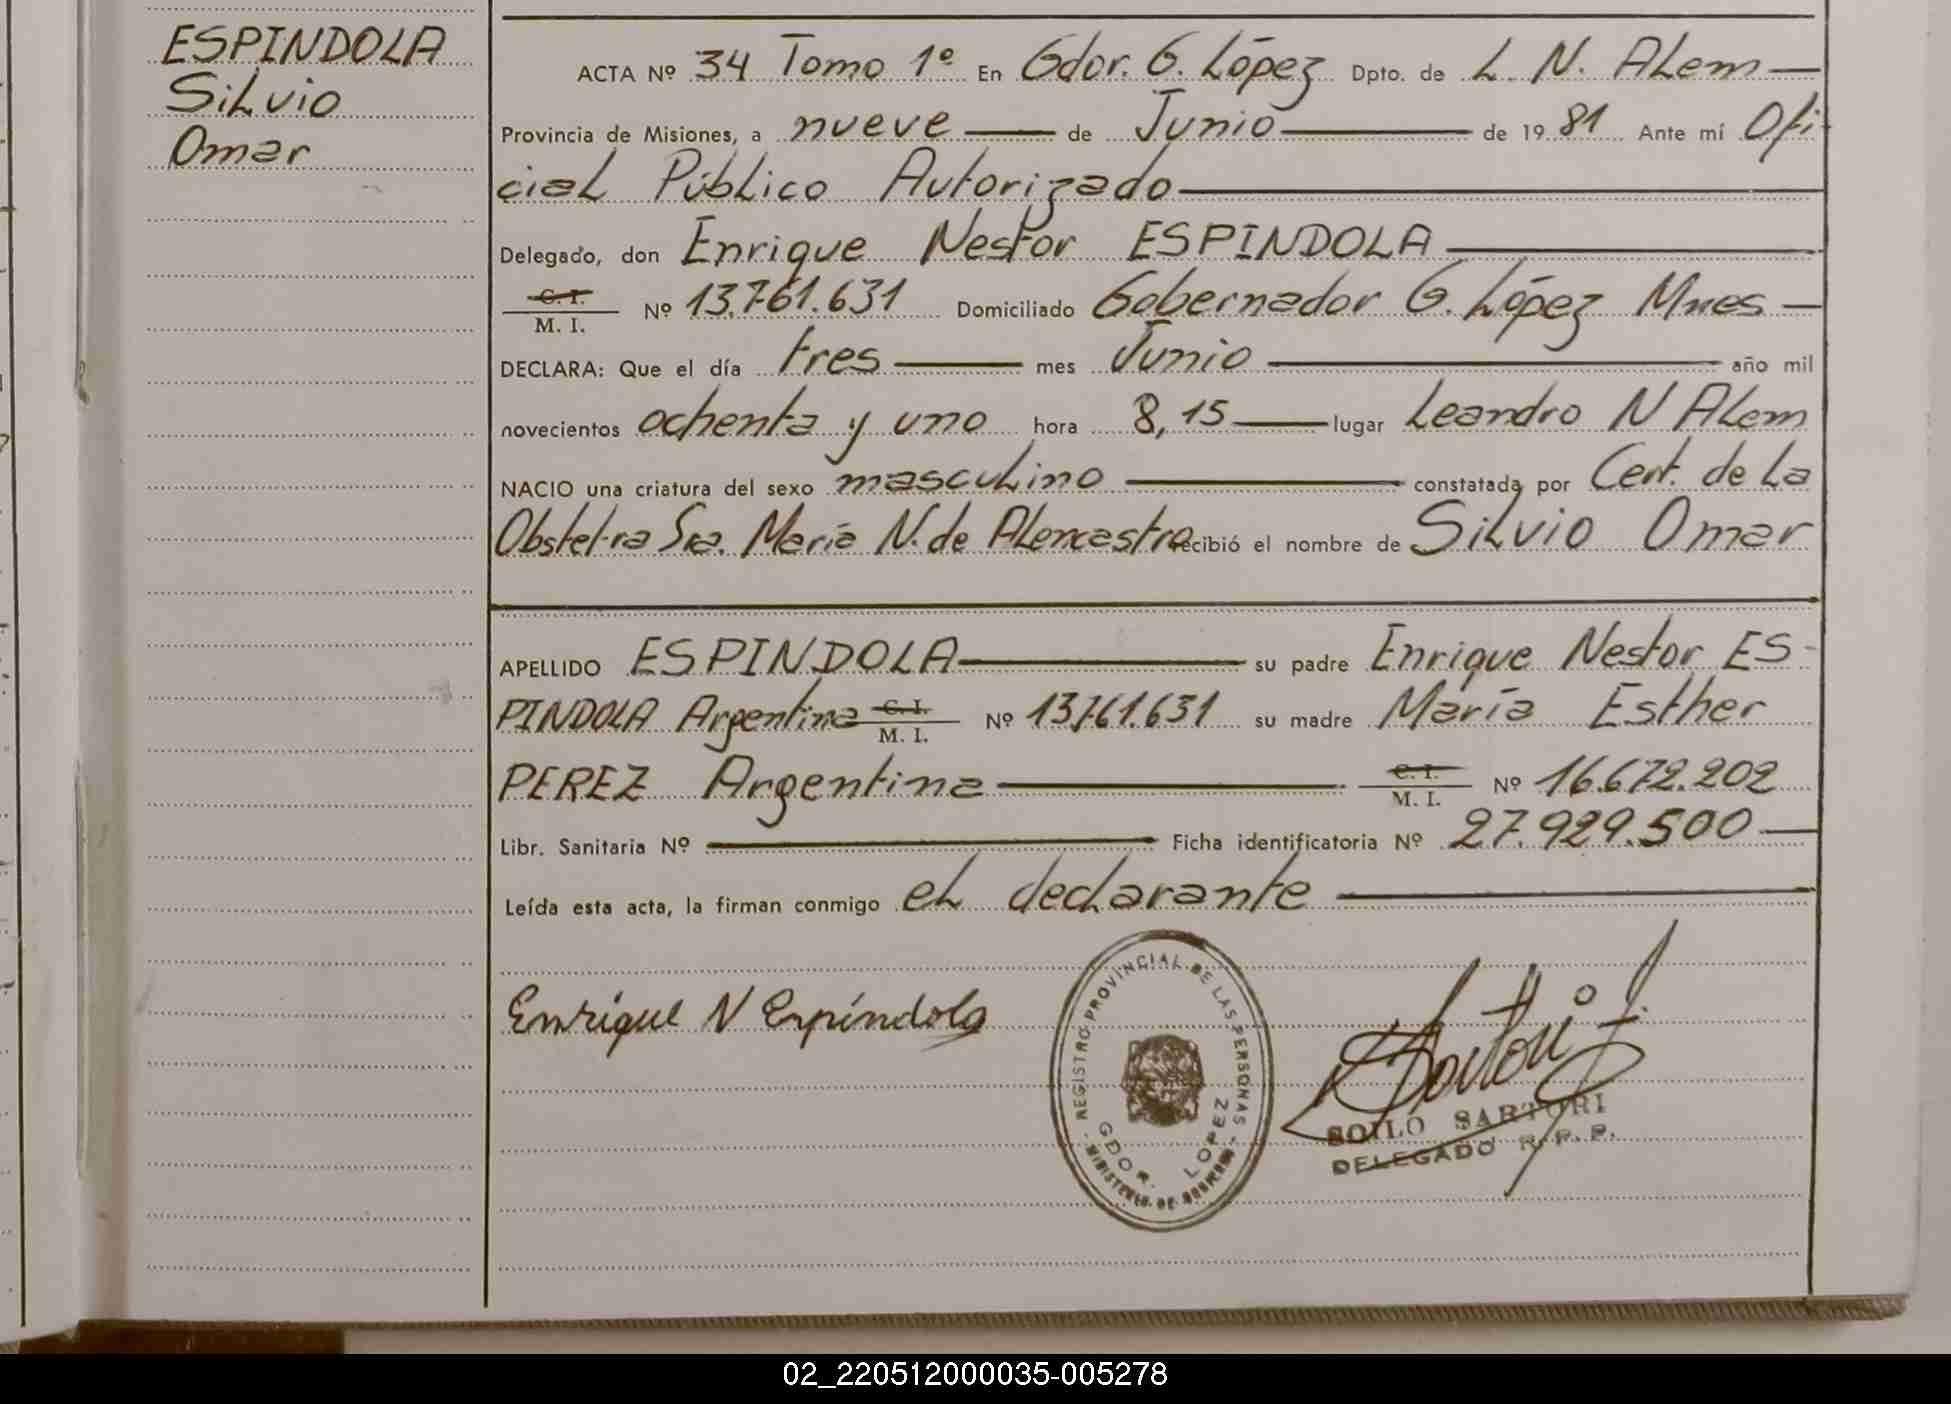 ESPINDOLA
Silvio
Omar
ACTA Nº 34 Tomo 1º En Gdor. G. López Dpto. de L. N. Alem
Provincia de Misiones, a nueve de Junio de 1981 Ante mí Ofi
cial Público Autorizado
Delegado, don Enrique Nestor ESPINDOLA
C. I.
M. I. Nº 13.761.631 Domiciliado Gobernador G. López Mnes
DECLARA: Que el día tres mes Junio año mil
novecientos ochenta y uno hora 8,15 lugar Leandro N Alem
NACIO una criatura del sexo masculino constatada por Cert. de la
Obstetra Sra. María N. de Alencastro recibió el nombre de Silvio Omar
APELLIDO ESPINDOLA su padre Enrique Nestor ES-
PINDOLA Argentina C. I. M. I. Nº 13.761.631 su madre María Esther
PEREZ Argentina C. I. M. I. Nº 16.672.202
Libr. Sanitaria Nº Ficha identificatoria Nº 27.929.500
Leída esta acta, la firman conmigo el declarante
Enrique N Espíndola
REGISTRO PROVINCIAL DE LAS PERSONAS
GDOR. LOPEZ
MINISTERIO DE GOBIERNO
SOILO SARTORI
DELEGADO R. P. P.
02_220512000035-005278